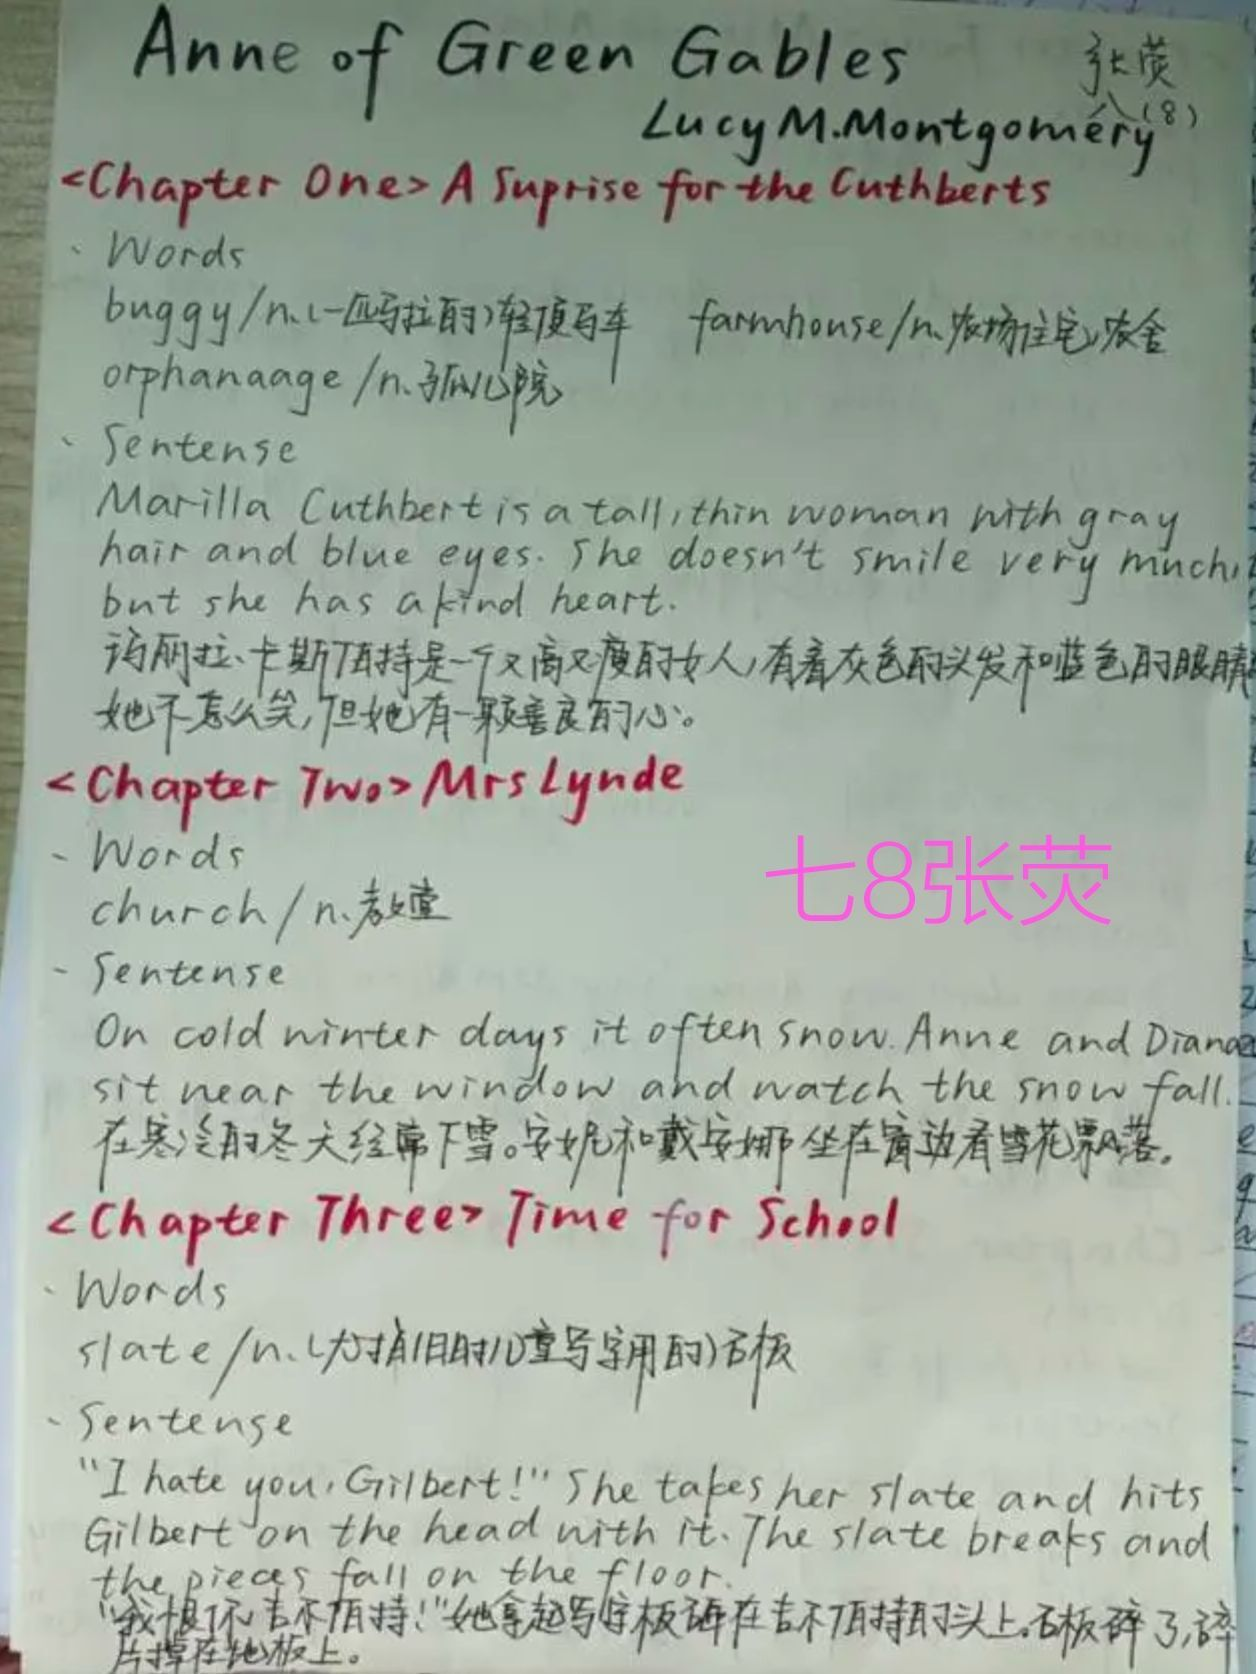 Anne of Green Gables
张荧
八(8)
Lucy M.Montgomery
<Chapter One> A Suprise for the Cuthberts
- Words
buggy/n.(一匹马拉的)轻便马车 farmhouse/n.农场住宅,农舍
orphanaage/n.孤儿院
- Sentense
Marilla Cuthbert is a tall, thin woman with gray
hair and blue eyes. She doesn't smile very much,
but she has a kind heart.
玛丽拉·卡斯伯特是一个又高又瘦的女人,有着灰色的头发和蓝色的眼睛
她不怎么笑,但她有一颗善良的心。
<Chapter Two> Mrs Lynde
- Words
church/n.教堂
七8张荧
- Sentense
On cold winter days it often snow. Anne and Diana
sit near the window and watch the snow fall.
在寒冷的冬天经常下雪。安妮和戴安娜坐在窗边看雪花飘落。
<Chapter Three> Time for School
- Words
slate/n.(尤指旧时儿童写字用的)石板
- Sentense
"I hate you, Gilbert!" She takes her slate and hits
Gilbert on the head with it. The slate breaks and
the pieces fall on the floor.
"我恨你,吉尔伯特!"她拿起写字板砸在吉尔伯特的头上。石板碎了,碎
片掉在地板上。